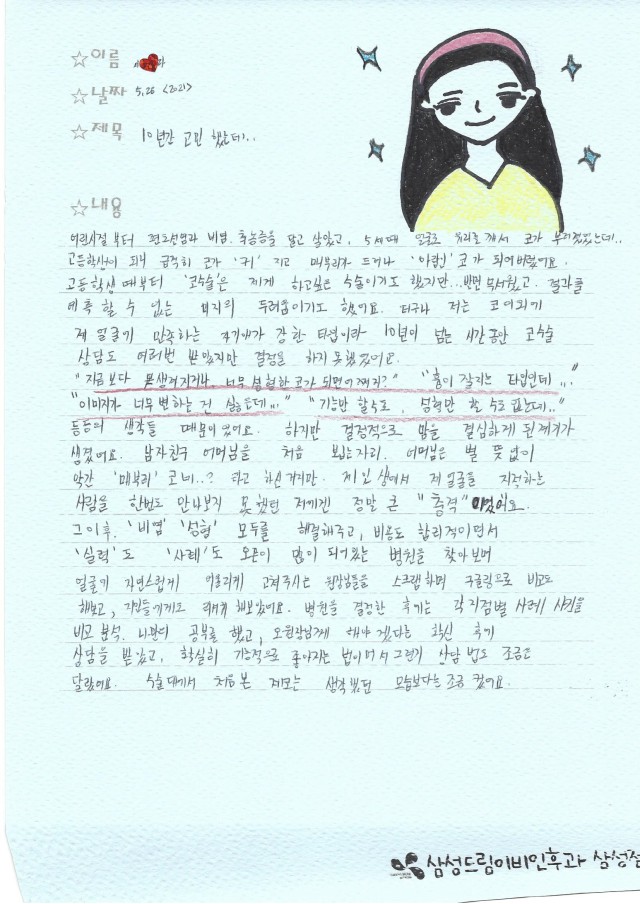 ☆이름
☆날짜 5.26 <2021>
☆제목 10년간 고민 했는데..
☆내용
어린시절부터 편도선염과 비염. 축농증을 달고 살았고, 5세때 얼굴로 유리를 깨서 코가 부러졌었는데..
고등학생이 되며 급격히 코가 '커' 지고 매부리가 드러나 '아련' 코가 되어버렸어요.
고등학생 때부터 '코수술'은 제게 하고싶은 수술이기도 했지만... 반면 무서웠고. 결과를
예측 할 수 없는 미지의 두려움이기도 했어요. 더구나 저는 코여되기
제 얼굴에 만족하는 자기애가 강한 타입이라 10년이 넘는 시간동안 코수술
상담도 여러번 받았지만 결정을 하지 못했었어요.
"지금보다 못생겨지거나 너무 성형한 코가 되면 어쩌지?" "흉이 잘지는 타입인데..."
"이미지가 너무 변하는 건 싫은데..." "기능만 할수도, 성형만 할 수도 없는데.."
등등의 생각들 때문이었어요. 하지만 결정적으로 맘을 결심하게 된 계기가
생겼어요. 남자친구 어머님을 처음 뵙는자리. 어머님은 별 뜻 없이
약간 '매부리' 코네..? 라고 하신거지만. 제 인생에서 제 얼굴을 지적하는
사람을 한번도 만나보지 못했던 저에겐 정말 큰 "충격"이었어요.
그 이후. '비염' '성형' 모두를 해결해주고, 비용도 합리적이면서
'실력'도 '사례'도 오픈이 많이 되어있는 병원을 찾아보며
얼굴에 자연스럽게 어울리게 고쳐주시는 원장님들을 스크랩하며 구글링으로 비교도
해보고, 지인들에게도 해보았어요. 병원을 결정한 후기는 각 지점별 사례 사진을
비교 분석. 나만의 공부를 했고, 오원장님께 해야 겠다는 확신 후기
상담을 받았고, 확실히 기능적으로 좋아지는 법이며 그런지 상담 법도 조금은
달랐어요. 수술대에서 처음 본 제모는 생각했던 모습보다는 조금 컸어요.
삼성드림이비인후과 삼성점